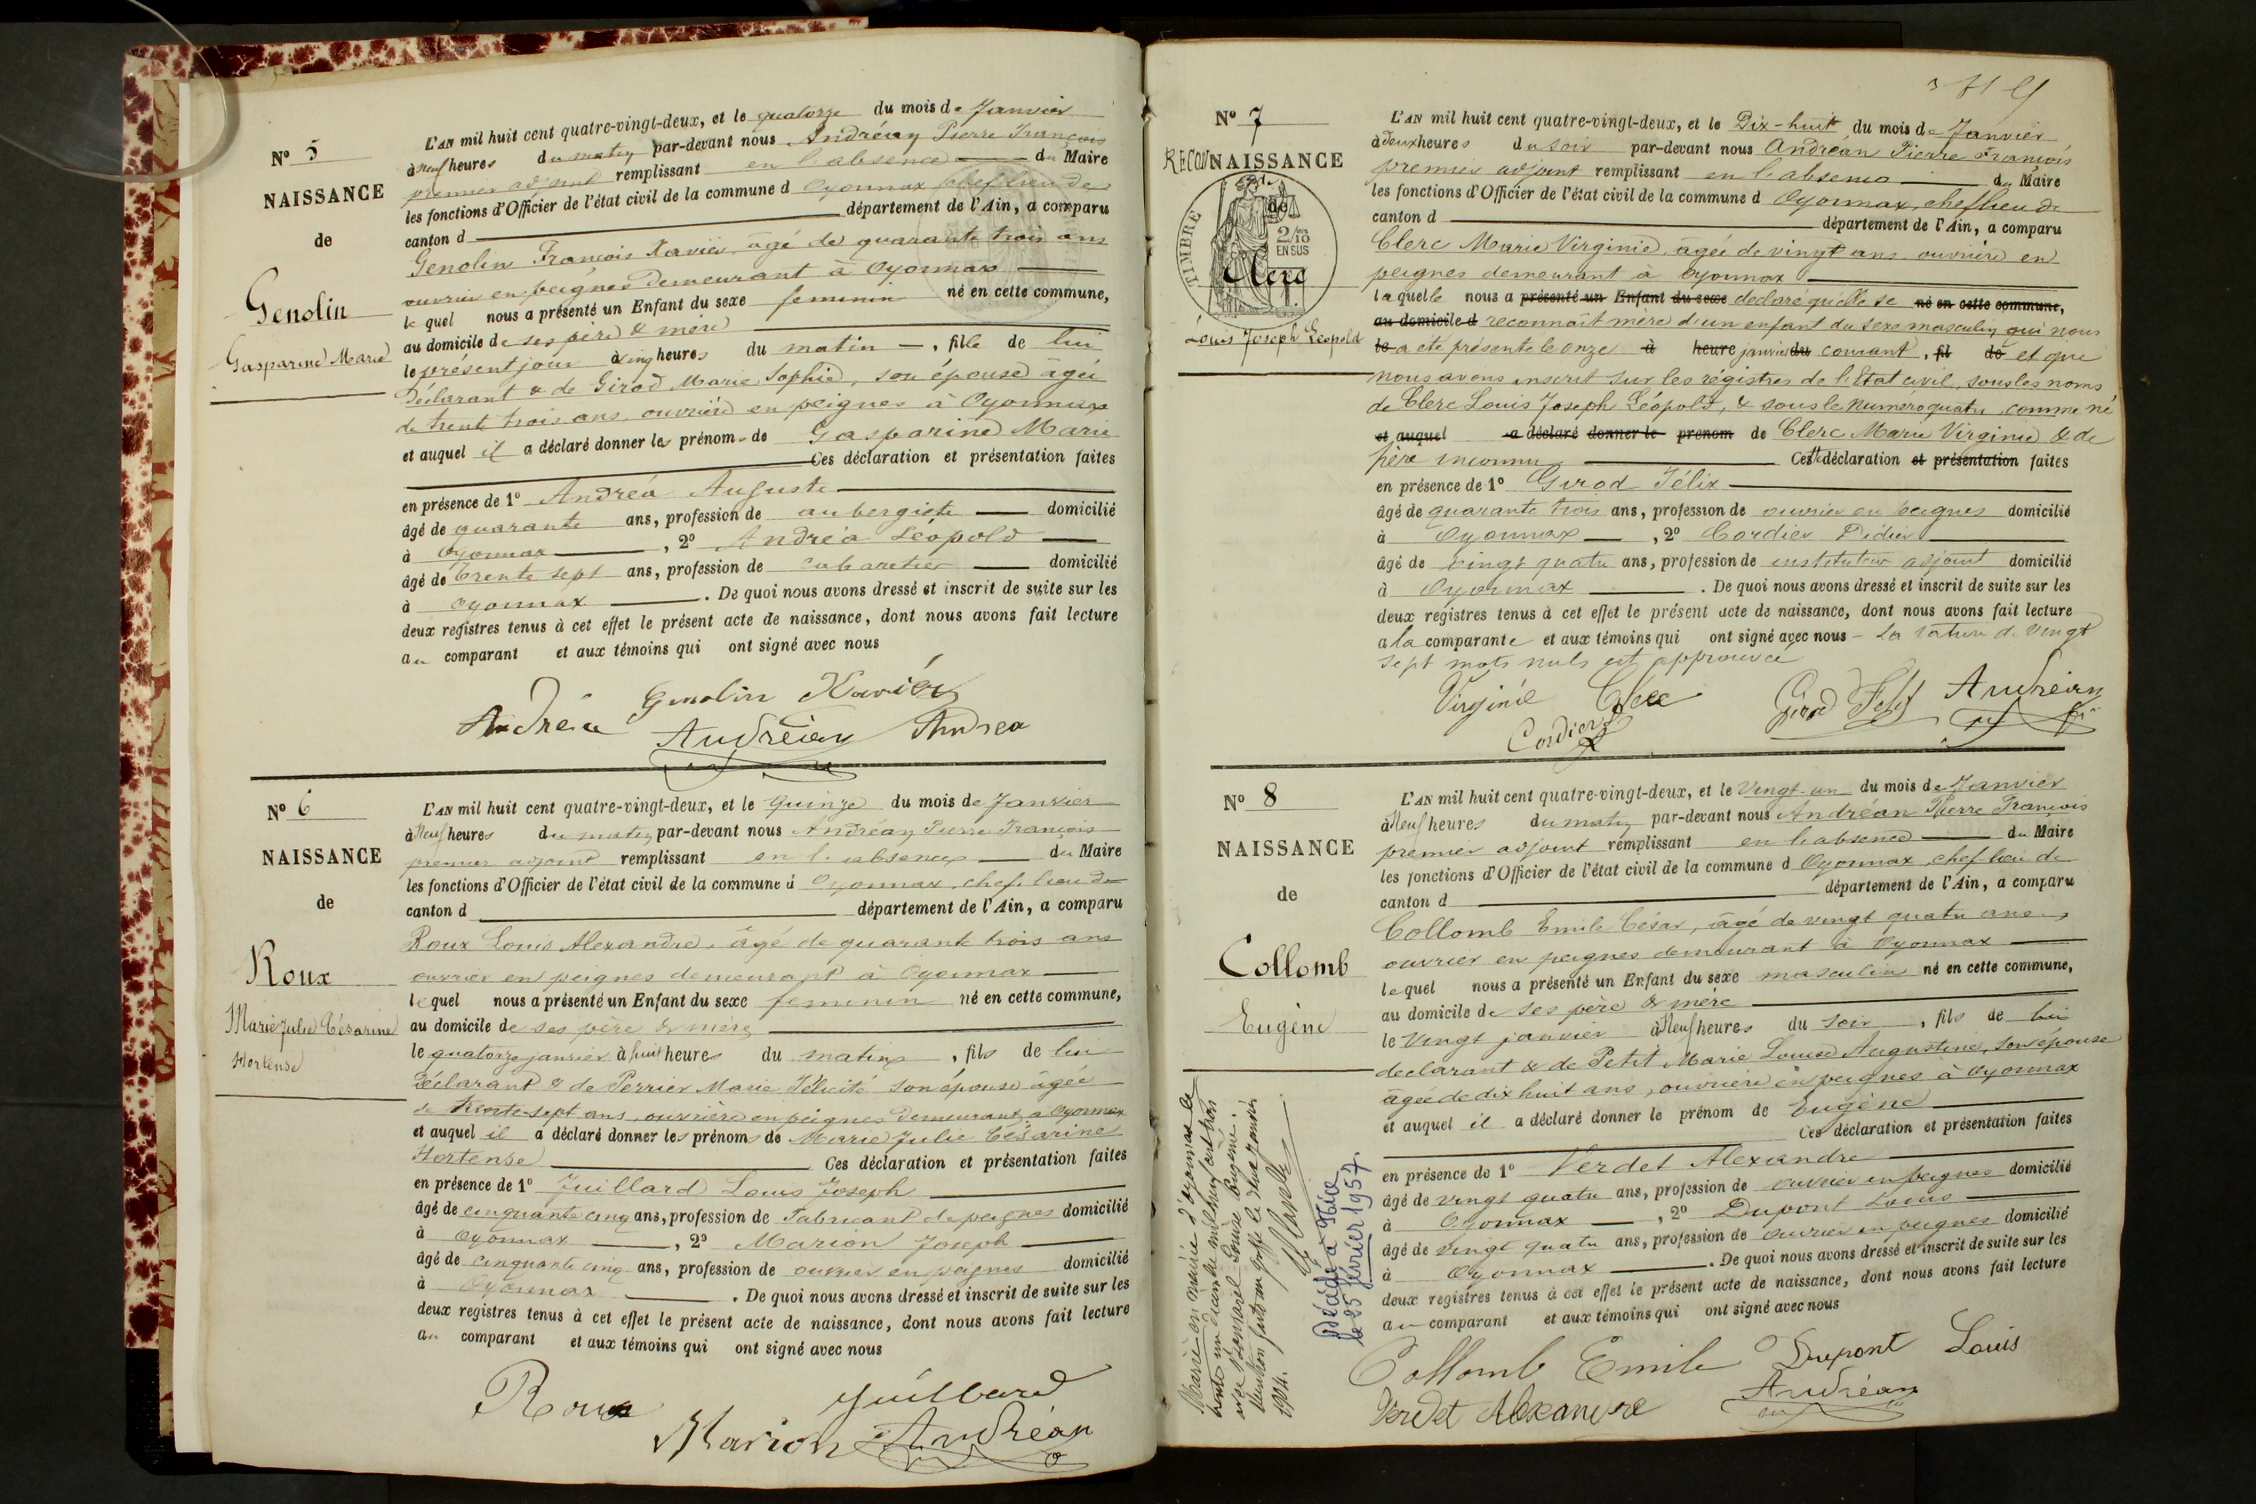 N° 5
NAISSANCE
de
Genolin
Gasparine Marie
L'AN mil huit cent quatre-vingt-deux, et le quatorze du mois de Janvier
à neuf heures du matin par-devant nous Andréan Pierre François
premier adjoint remplissant en l'absence du Maire
les fonctions d'Officier de l'état civil de la commune d Oyonnax chef lieu de
canton d département de l'Ain, a comparu
Genolin François Xavier âgé de quarante trois ans
ouvrier en peignes demeurant à Oyonnax
lequel nous a présenté un Enfant du sexe feminin né en cette commune,
au domicile de ses père & mère
le présent jour à cinq heures du matin, fille de lui
déclarant & de Girod Marie Sophie, son épouse âgée
de trente trois ans ouvrière en peignes à Oyonnax
et auquel il a déclaré donner les prénoms de Gasparine Marie
Ces déclaration et présentation faites
en présence de 1° Andréa Auguste
âgé de quarante ans, profession de aubergiste domicilié
à Oyonnax, 2° Andréa Léopold
âgé de trente sept ans, profession de cabaretier domicilié
à Oyonnax. De quoi nous avons dressé et inscrit de suite sur les
deux registres tenus à cet effet le présent acte de naissance, dont nous avons fait lecture
au comparant et aux témoins qui ont signé avec nous
Genolin Xavier
Andréa Andréan Andrea
N° 6
NAISSANCE
de
Roux
Marie Julie Césarine
Hortense
L'AN mil huit cent quatre-vingt-deux, et le quinze du mois de Janvier
à Neuf heures du matin par-devant nous Andréan Pierre François
premier adjoint remplissant en l'absence du Maire
les fonctions d'Officier de l'état civil de la commune d Oyonnax, chef lieu de
canton d département de l'Ain, a comparu
Roux Louis Alexandre, âgé de quarante trois ans
ouvrier en peignes demeurant à Oyonnax
lequel nous a présenté un Enfant du sexe feminin né en cette commune,
au domicile de ses père & mère
le quatorze janvier à huit heures du matin, fils de lui
déclarant & de Perrier Marie Félicité son épouse âgée
de trente-sept ans, ouvrière en peignes demeurant à Oyonnax
et auquel il a déclaré donner les prénoms de Marie Julie Césarine
Hortense Ces déclaration et présentation faites
en présence de 1° Juillard Louis Joseph
âgé de cinquante cinq ans, profession de Fabricant de peignes domicilié
à Oyonnax, 2° Marion Joseph
âgé de cinquante cinq ans, profession de ouvrier en peignes domicilié
à Oyonnax. De quoi nous avons dressé et inscrit de suite sur les
deux registres tenus à cet effet le présent acte de naissance, dont nous avons fait lecture
au comparant et aux témoins qui ont signé avec nous
Roux Juillard
Marion Andréan
N° 7
RECONNAISSANCE
de
TIMBRE
2/10
EN SUS
Clerc
Louis Joseph Léopold
L'AN mil huit cent quatre-vingt-deux, et le Dix-huit du mois de Janvier
à deux heures du soir par-devant nous Andréan Pierre François
premier adjoint remplissant en l'absence du Maire
les fonctions d'Officier de l'état civil de la commune d Oyonnax, chef lieu de
canton d département de l'Ain, a comparu
Clerc Marie Virginie, âgée de vingt ans ouvrière en
peignes demeurant à Oyonnax
laquelle nous a présenté un Enfant du sexe declare qu'elle se né en cette commune,
au domicile d reconnaît mère d'un enfant du sexe masculin qui nous
le a été présenté le onze à heure janvier du courant, fil de et que
nous avons inscrit sur les régistres de l'Etat civil, sous les noms
de Clerc Louis Joseph Léopold, & sous le numéro quatre, comme né
et auquel a déclaré donner le prenom de Clerc Marie Virginie & de
père inconnu Cette déclaration et présentation faites
en présence de 1° Girod Félix
âgé de quarante trois ans, profession de ouvrier en peignes domicilié
à Oyonnax, 2° Cordier Didier
âgé de vingt quatre ans, profession de instituteur adjoint domicilié
à Oyonnax. De quoi nous avons dressé et inscrit de suite sur les
deux registres tenus à cet effet le présent acte de naissance, dont nous avons fait lecture
a la comparante et aux témoins qui ont signé avec nous - La rature de vingt
sept mots nuls est approuvée
Virginie Clerc Girod Félix Andréan
Cordier
N° 8
NAISSANCE
de
Collomb
Eugène
L'AN mil huit cent quatre-vingt-deux, et le Vingt-un du mois de Janvier
à Neuf heures du matin par-devant nous Andréan Pierre François
premier adjoint remplissant en l'absence du Maire
les fonctions d'Officier de l'état civil de la commune d Oyonnax, chef-lieu de
canton d département de l'Ain, a comparu
Collomb Emile César, âgé de vingt quatre ans,
ouvrier en peignes demeurant à Oyonnax
lequel nous a présenté un Enfant du sexe masculin né en cette commune,
au domicile de ses père & mère
le Vingt janvier à Neuf heures du soir, fils de lui
declarant & de Petit Marie Louise Augustine, son épouse
âgée de dix huit ans, ouvrière en peignes à Oyonnax
et auquel il a déclaré donner le prénom de Eugène
Ces déclaration et présentation faites
en présence de 1° Verdet Alexandre
âgé de vingt quatre ans, profession de ouvrier en peignes domicilié
à Oyonnax, 2° Dupont Louis
âgé de vingt quatre ans, profession de ouvrier en peignes domicilié
à Oyonnax. De quoi nous avons dressé et inscrit de suite sur les
deux registres tenus à cet effet le présent acte de naissance, dont nous avons fait lecture
au comparant et aux témoins qui ont signé avec nous
Collomb Emile Dupont Louis
Verdet Alexandre Andréan
Marié en mairie d'Oyonnax le
trente un décembre mil neuf cent trois
avec Louise Eugénie.
Mention faite au greffe le deux janvier
1904.
Décédé à Nice
le 25 février 1957.